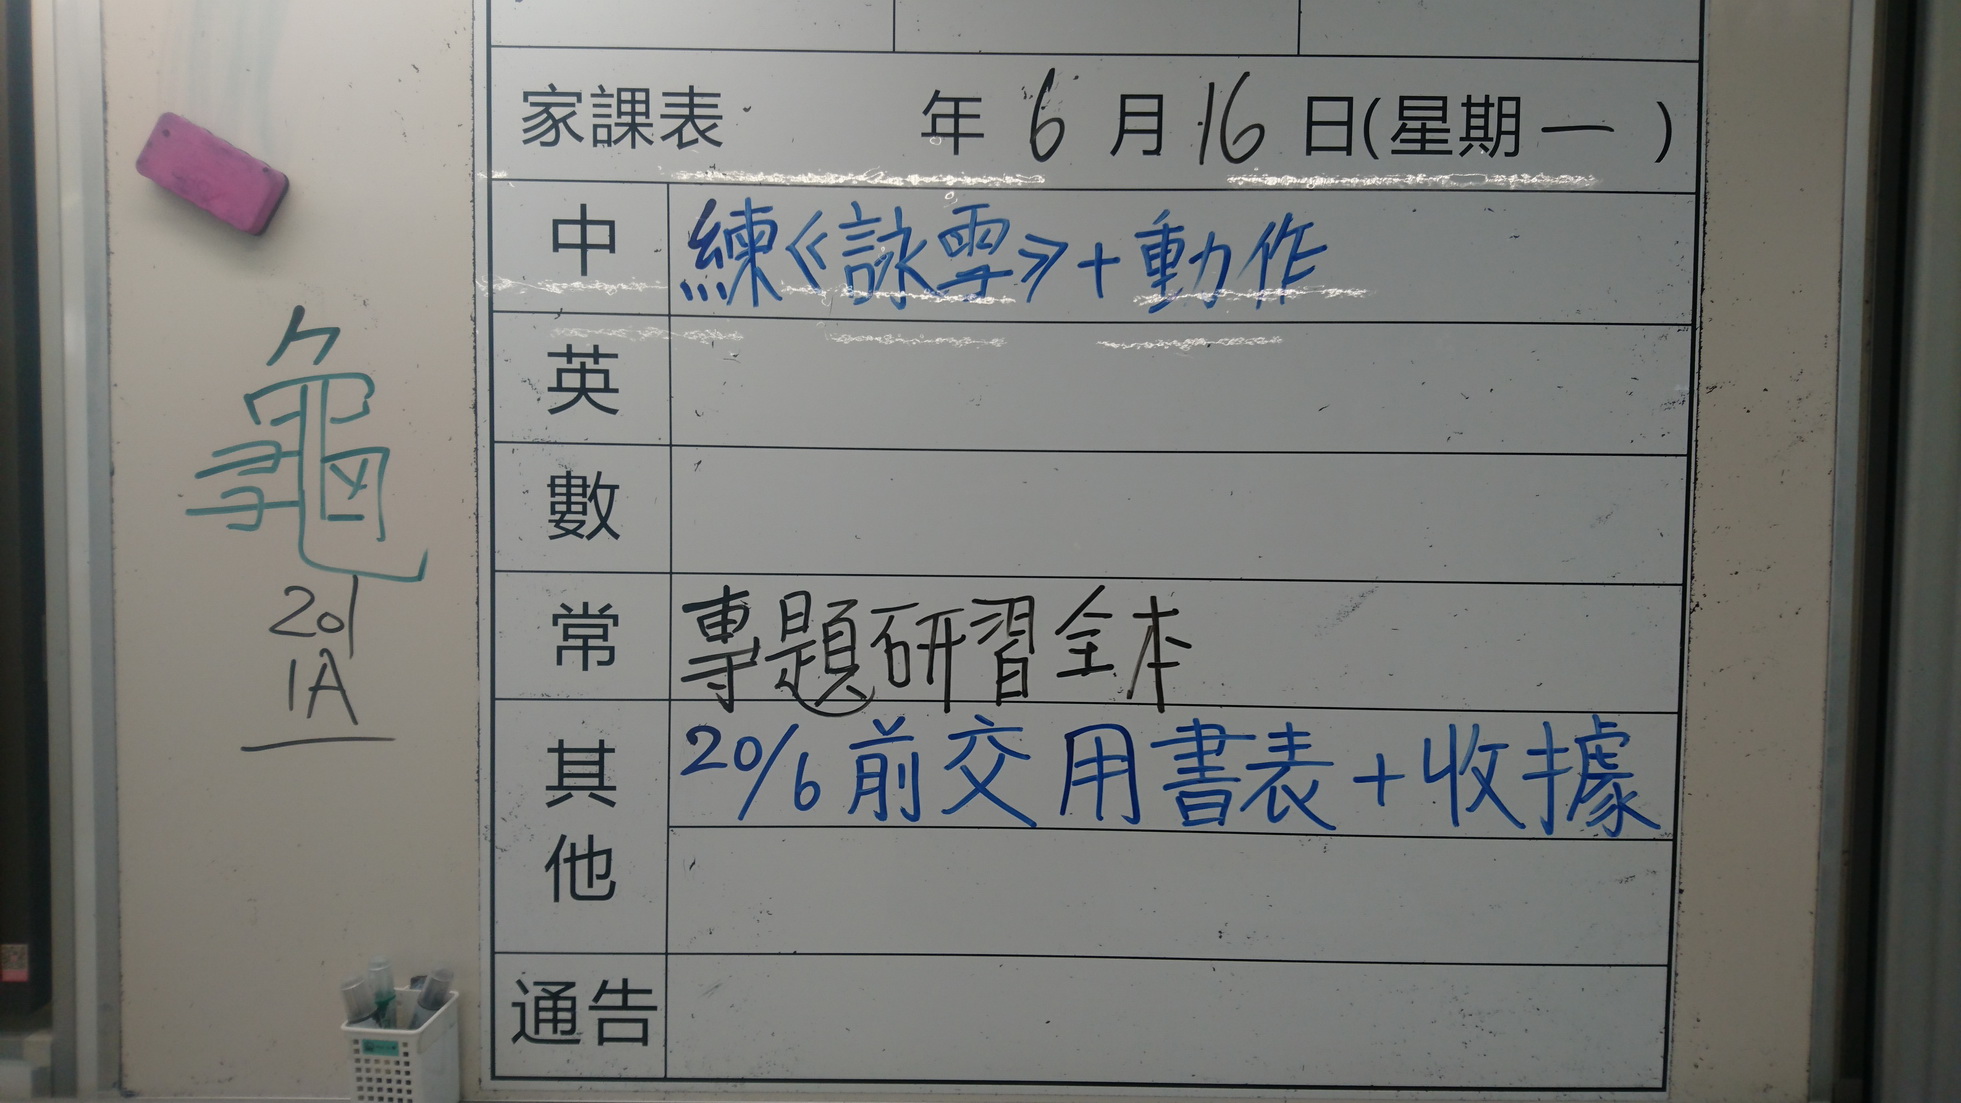 家課表 年 6 月 16 日(星期一)
中 練《詠雪》+動作
英
數
常 專題研習全本
其他 20/6前交用書表+收據
通告
龜
20
1A